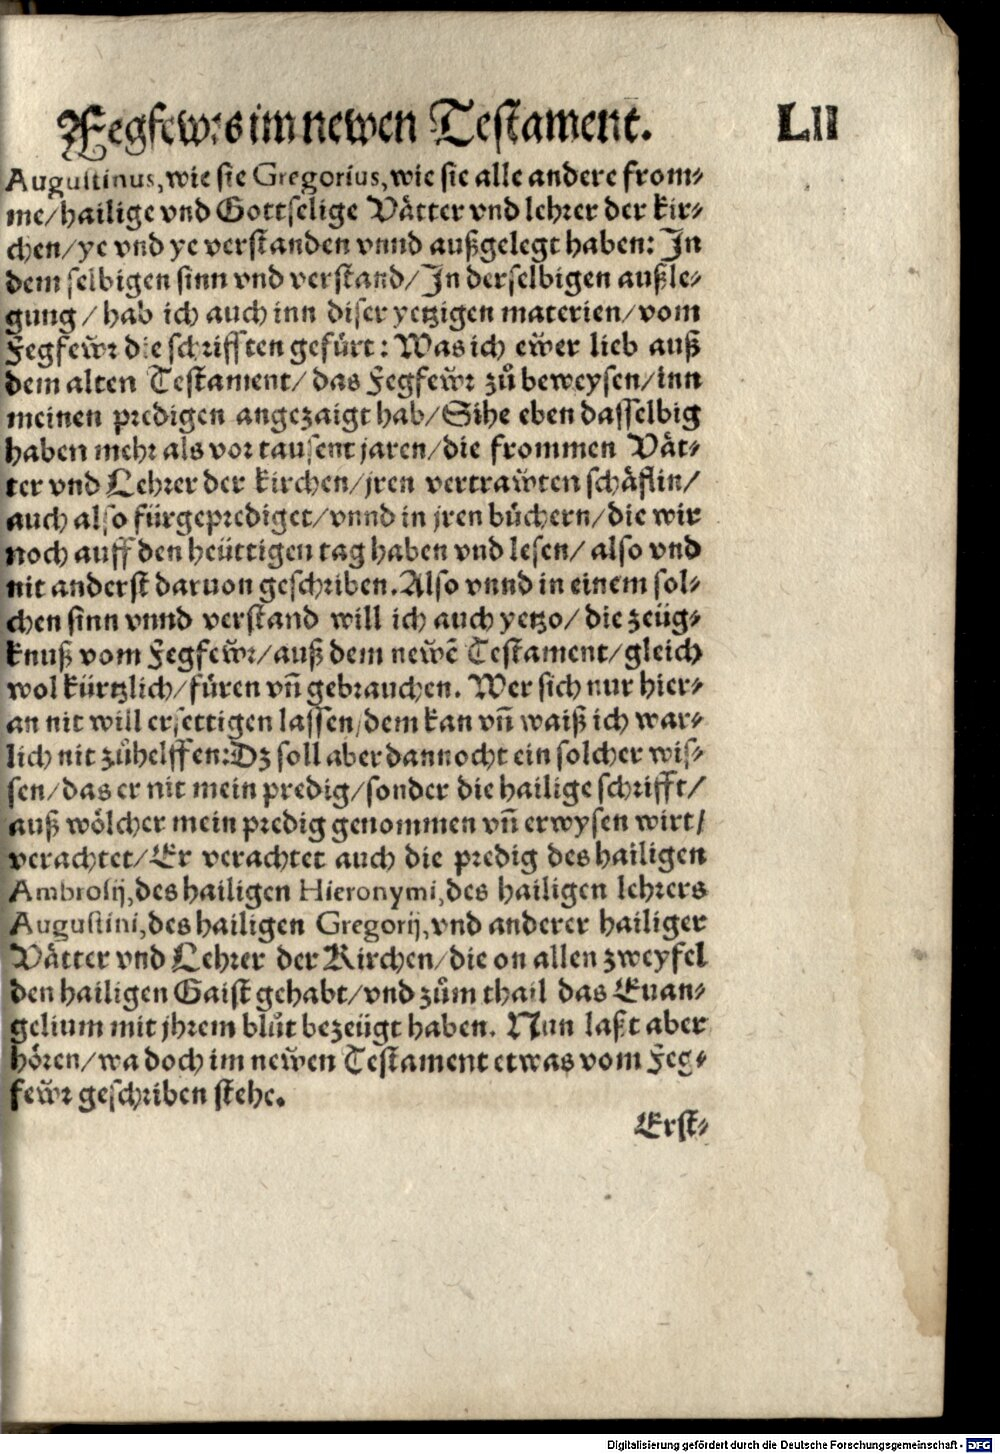 Fegfewrs im newen Testament. LII
Augustinus, wie sie Gregorius, wie sie alle andere from⸗
me/hailige vnd Gottselige Vaͤtter vnd lehrer der kir⸗
chen/ye vnd ye verstanden vnnd außgelegt haben: In
dem selbigen sinn vnd verstand/In derselbigen außle⸗
gung/hab ich auch inn diser yetzigen materien/vom
Fegfew̌r die schrifften gefuͤrt: Was ich ew̌er lieb auß
dem alten Testament/das Fegfew̌r zuͦ beweysen/inn
meinen predigen angezaigt hab/Sihe eben dasselbig
haben mehr als vor tausent jaren/die frommen Vaͤt⸗
ter vnd Lehrer der kirchen/jren vertraw̌ten schaͤflin/
auch also fürgeprediget/vnnd in jren buͤchern/die wir
noch auff den heüttigen tag haben vnd lesen/also vnd
nit anderst daruon geschriben. Also vnnd in einem sol⸗
chen sinn vnnd verstand will ich auch yetzo/die zeüg⸗
knuß vom Fegfew̌r/auß dem new̌ẽ Testament/gleich
wol kürtzlich/fuͤren vñ gebrauchen. Wer sich nur hier⸗
an nit will ersettigen lassen/dem kan vñ waiß ich war⸗
lich nit zuͦhelffen: Dz soll aber dannocht ein solcher wis⸗
sen/das er nit mein predig/sonder die hailige schrifft/
auß woͤlcher mein predig genommen vñ erwysen wirt/
verachtet/Er verachtet auch die predig des hailigen
Ambrosij, des hailigen Hieronymi, des hailigen lehrers
Augustini, des hailigen Gregorij, vnd anderer hailiger
Vaͤtter vnd Lehrer der Kirchen/die on allen zweyfel
den hailigen Gaist gehabt/vnd zuͦm thail das Euan⸗
gelium mit jhrem bluͦt bezeügt haben. Nun laßt aber
hoͤren/wa doch im new̌en Testament etwas vom Feg⸗
few̌r geschriben stehe.
Erst⸗
Digitalisierung gefördert durch die Deutsche Forschungsgemeinschaft - DFG